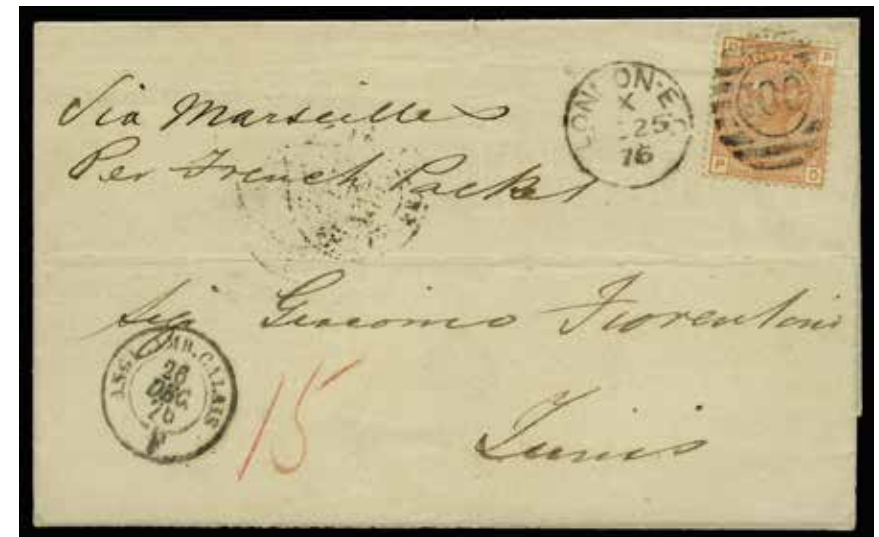 Via Marseilles
Per French Packet
LONDON·E.C
X
25
76
D P
100
P D
Sigr Giacomo Fiorentino
Tunis
ANGL. AMB. CALAIS
26
DEC.
76
15